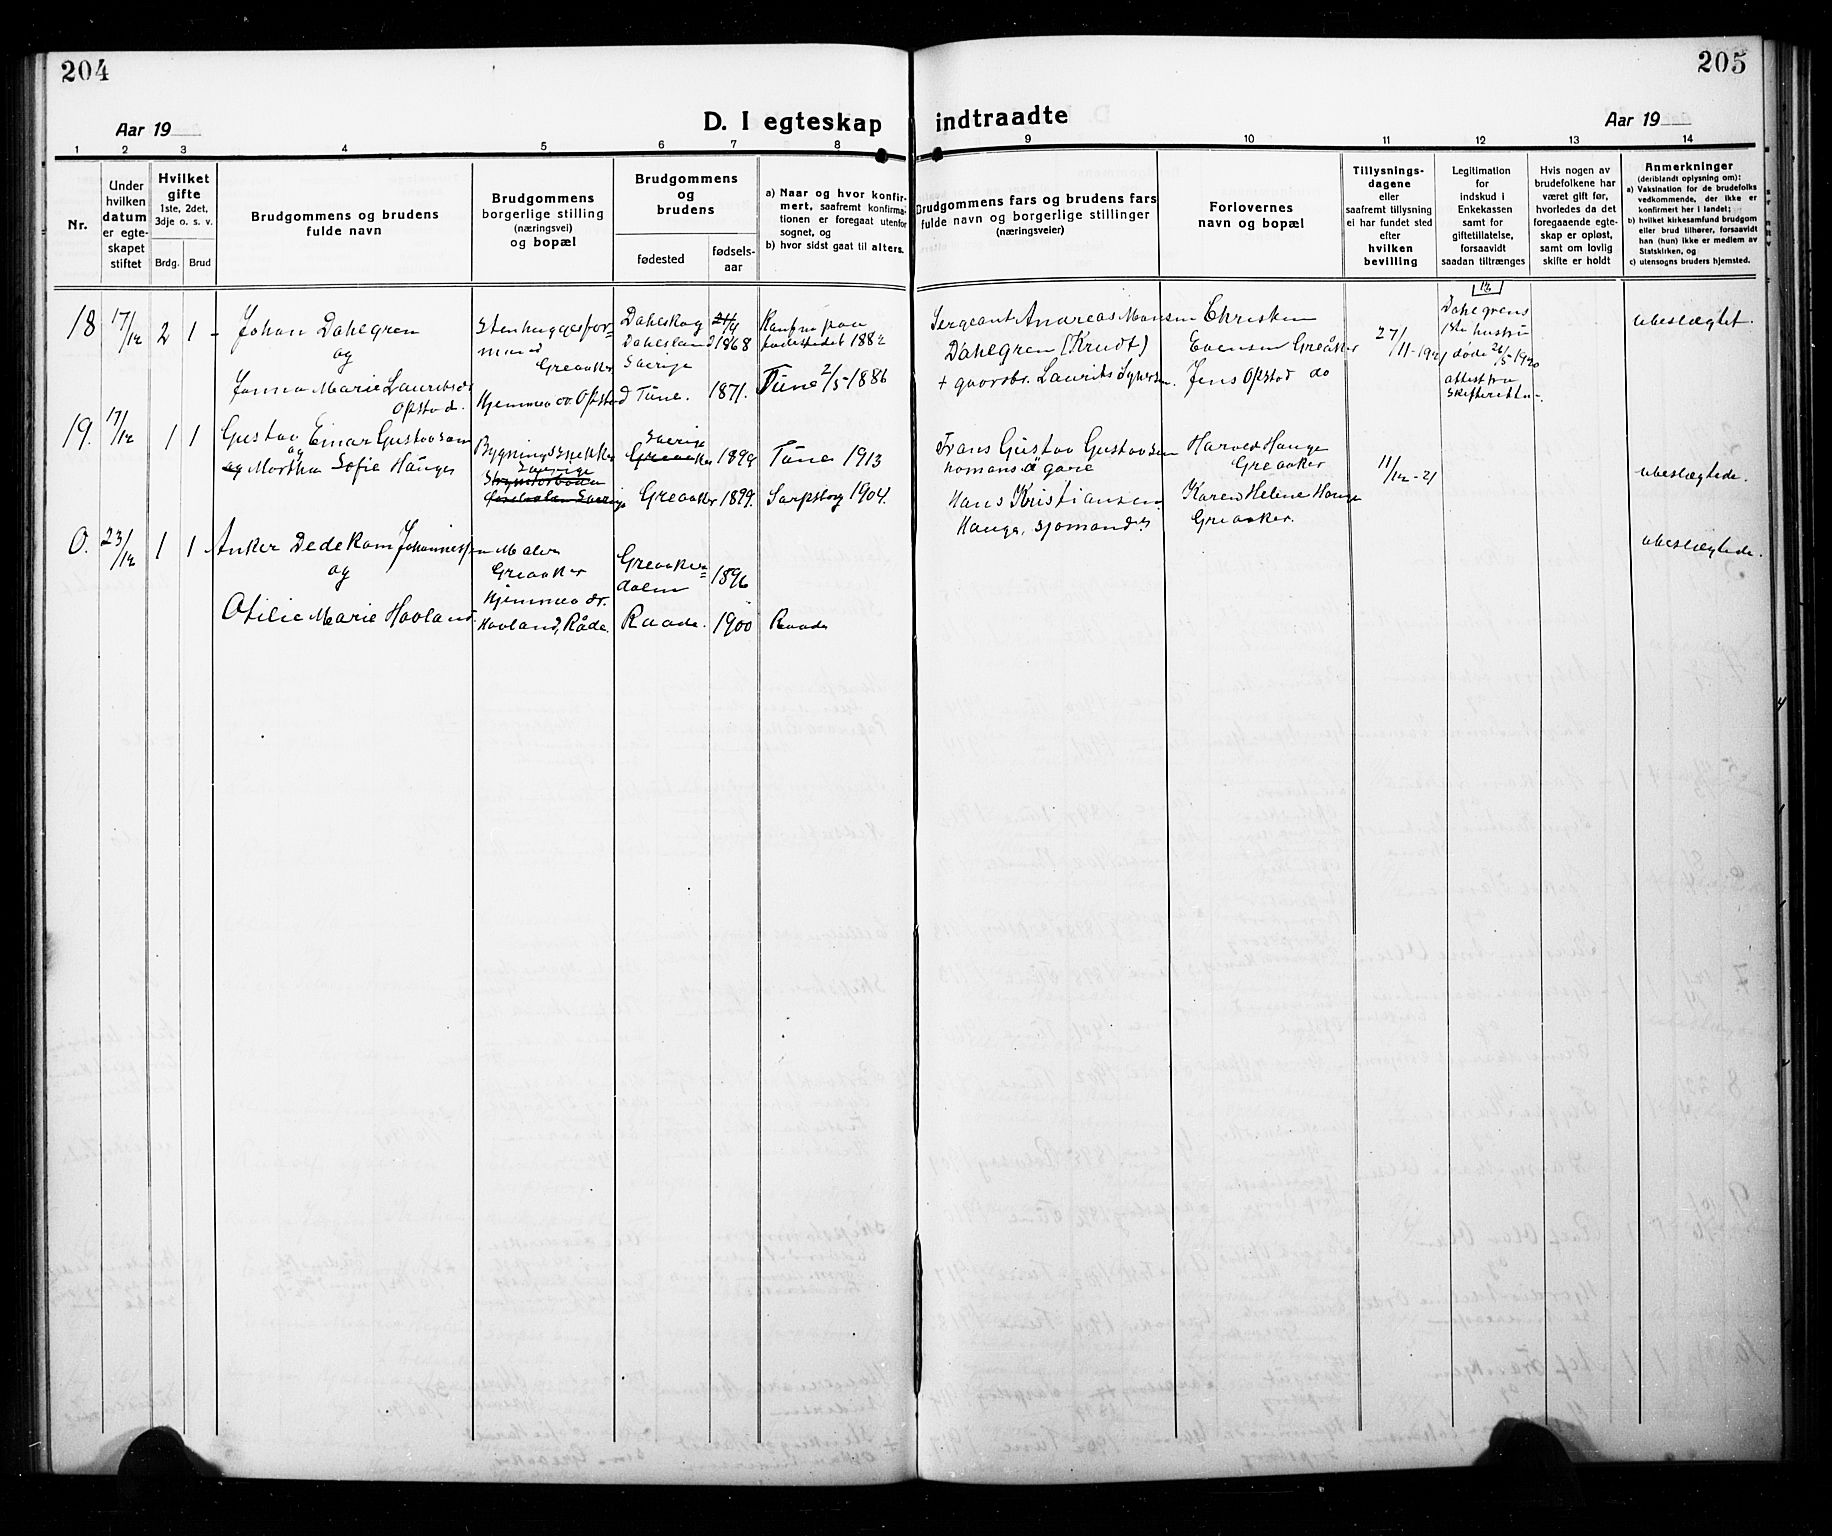 204
205
D. I egteskap indtraadte
Aar 19
Aar 19
1 2 3 4 5 6 7 8 9 10 11 12 13 14
Nr.
Under
hvilken
datum
er egte-
skapet
stiftet
Hvilket
gifte
1ste, 2det,
3dje o. s. v.
Brdg.
Brud
Brudgommens og brudens
fulde navn
Brudgommens
borgerlige stilling
(næringsvei)
og bopæl
Brudgommens
og
brudens
fødested
fødsels-
aar
a) Naar og hvor konfir-
mert, saafremt konfirma-
tionen er foregaat utenfor
sognet, og
b) hvor sidst gaat til alters.
Brudgommens fars og brudens fars
fulde navn og borgerlige stillinger
(næringsveier)
Forlovernes
navn og bopæl
Tillysnings-
dagene
eller
saafremt tillysning
ei har fundet sted
efter
hvilken
bevilling
Legitimation
for
indskud i
Enkekassen
samt for
giftetillatelse,
forsaavidt
saadan tiltrænges
Hvis nogen av
brudefolkene har
været gift før,
hvorledes da det
foregaaende egte-
skap er opløst,
samt om lovlig
skifte er holdt
Anmerkninger
(deriblandt oplysning om):
a) Vaksination for de brudefolks
vedkommende, der ikke er
konfirmert her i landet;
b) hvilket kirkesamfund brudgom
eller brud tilhører, forsaavidt
han (hun) ikke er medlem av
Statskirken, og
c) utensogns bruders hjemsted.
18
17/12
2
1
Johan Dahlgren
og
Janna Marie Lauritsdr
Opstad.
Stenhuggerfor-
mand
Greaaker
Hjemmev. Opstad
Dahlskog
Dahlsland
Sverige
Tune.
21/4
1868
1871.
Konfm paa
fødestedet 1882
Tune 2/5-1886
Sergeant Andreas Monsen
Dahlgren (Krudt)
+ gaardbr. Laurits
Christian
Evensen Greåker
Jens Opstad do
27/11-1921
13
Dahlgrens
1ste hustru
døde 26/5-1920
attest fra
Skifteretten.
ubeslægtet.
19.
17/12
1
1
Gustav Einar Gustavsson
og
og Martha Sofie Hauge
Bygningssnekker
Sverige
Sverige
Greaaker
Greaaker
1899
1899.
Tune 1913
Sarpsborg 1904.
Frans Gustav Gustavsen
Hans Kristiansen
Hauge, sjømand
Harald Hauge
Greaaker
Karen Helene Hauge
Greaaker.
11/12-21
ubeslægtede.
0.
23/12
1
1
Anker Dedekam Johannessen
og
Otilie Marie Hovland
Maler
Greaaker
Hjemmev. dr.
Hovland, Råde.
Greaaker=
dalen
Raade.
1896
1900
Raade
ubeslægtede.